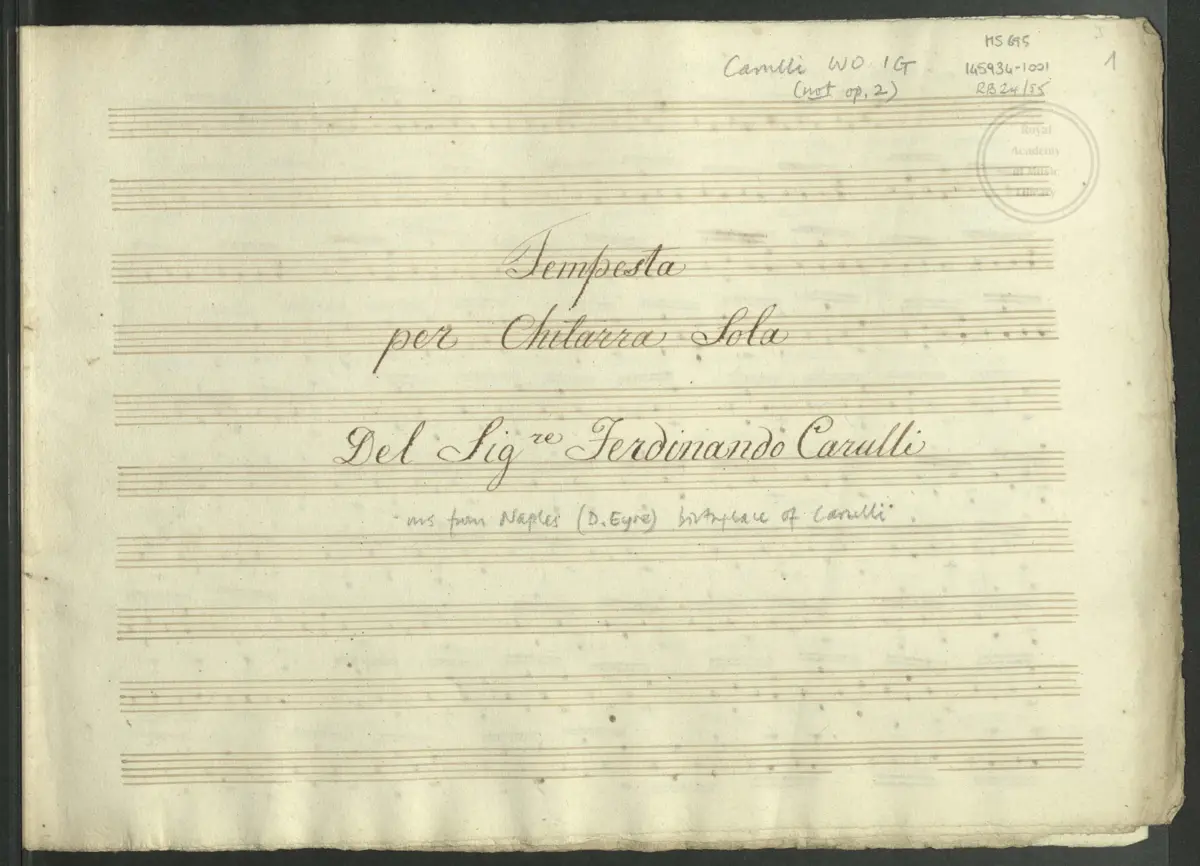 MS 695
Carulli WO 1G
145934-1001
1
(not op. 2)
RB24/55
Royal
Academy
of Music
Library
Tempesta
per Chitarra Sola
Del Sigre Ferdinando Carulli
ms from Naples (D. Eyre) birthplace of Carulli